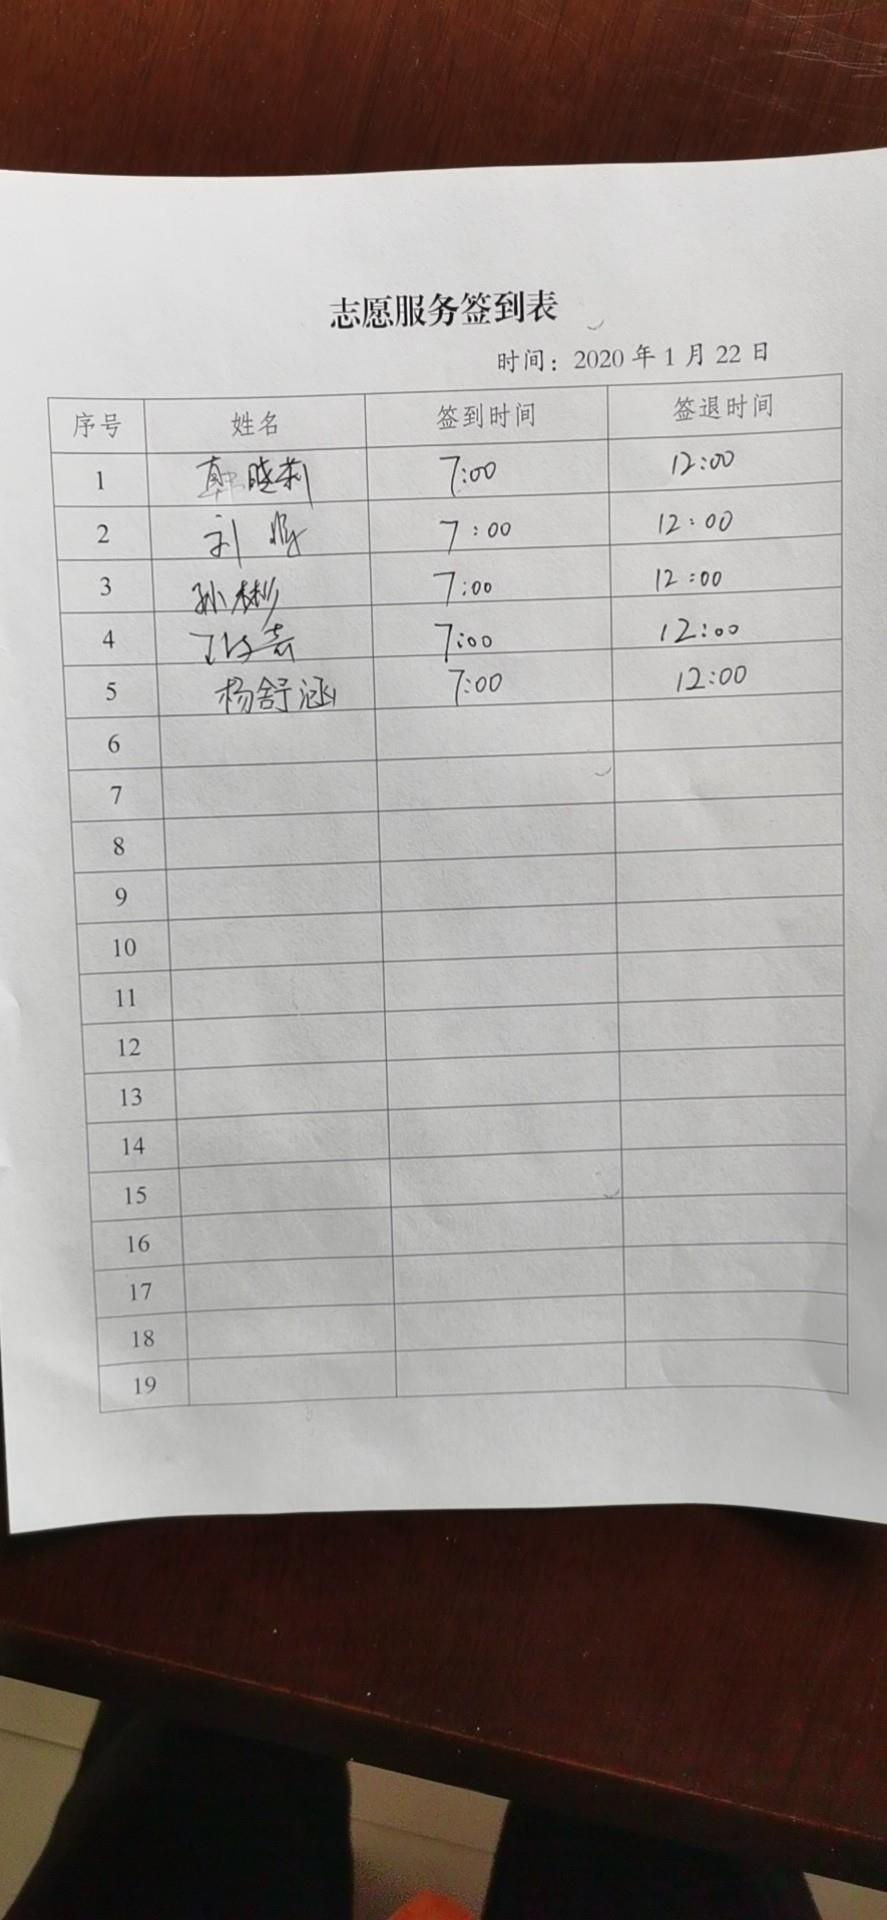 志愿服务签到表
时间：2020 年 1 月 22 日
序号 姓名 签到时间 签退时间
1 韩晓莉 7:00 12:00
2 刘 7:00 12:00
3 孙彬 7:00 12:00
4 7:00 12:00
5 杨舒涵 7:00 12:00
6
7
8
9
10
11
12
13
14
15
16
17
18
19